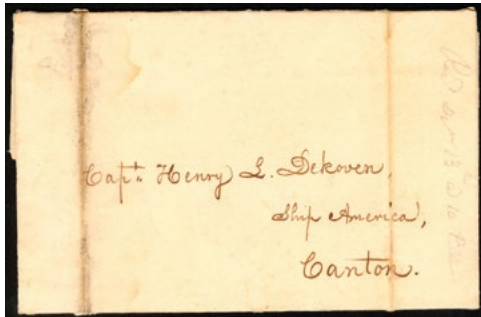 Capt. Henry L. Dekoven,
Ship America,
Canton.